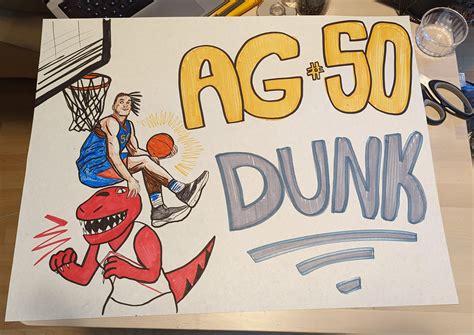 AG #50
DUNK